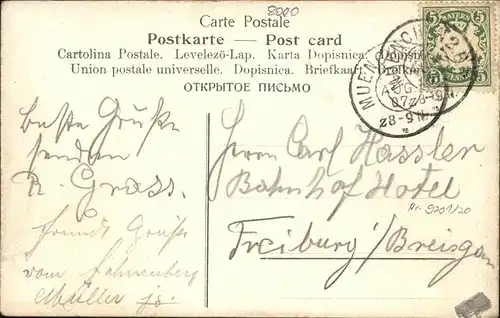 8000
Carte Postale
Postkarte — Post card
Cartolina Postale. Levelezö-Lap. Karta Dopisnica.
Union postale universelle. Dopisnica. Briefkaart.
ОТКРЫТОЕ ПИСЬМО
5 BAYERN 5
MUENCHEN
AUG
07
8-9 N.
beste Grüße
senden
R. Grass.
Freundl Grüße
vom
Müller jr.
Herrn Carl Hassler
Bahnhof Hotel
Nr. 9201/20
Freiburg i/Breisgau